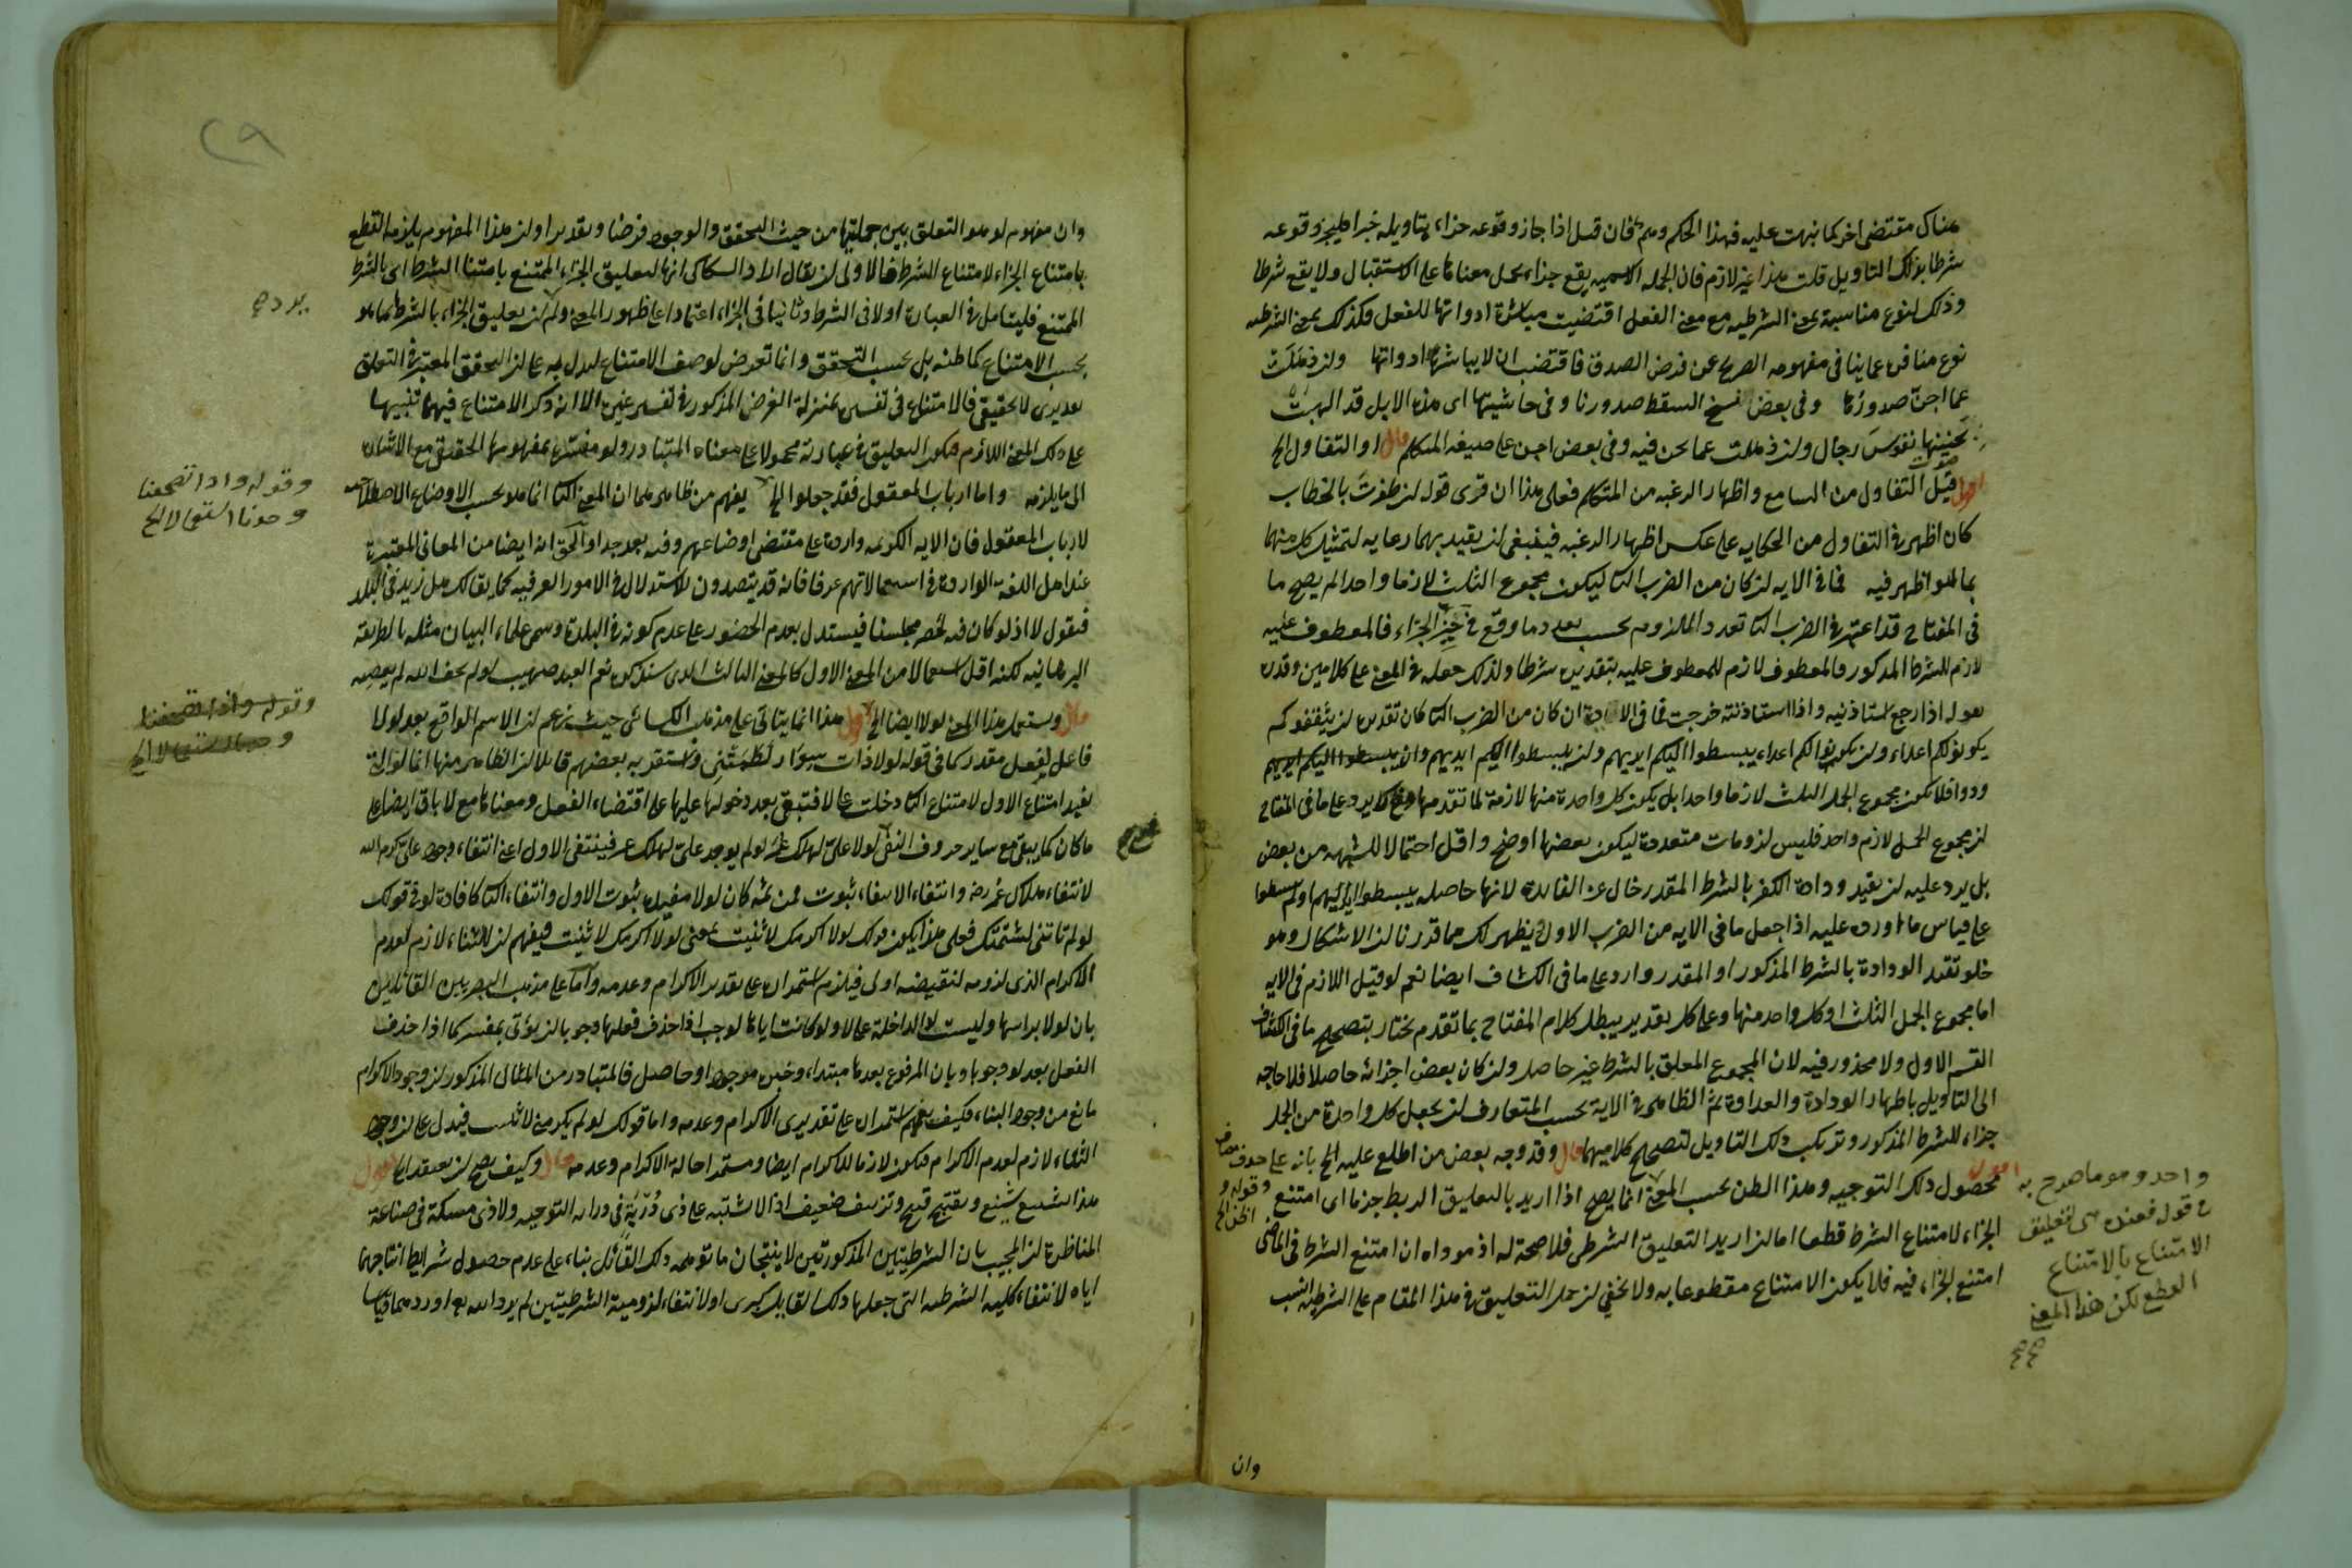 هناك مقتضى اخر كما نبهت عليه فهذا الحكم وهم فان قيل اذا جاز وقوعه جزاء بتاويله خبرا فليجز وقوعه
شرطا بذلك التاويل قلت هذا غير لازم فان الجملة الاسمية يقع جزاء يحمل معناها على الاستقبال ولا يقع شرطا
وذلك لنوع مناسبة بمعنى الشرطية مع معنى الفعل اقتضيت مباشرة ادواتها للفعل وكذلك بمعنى الشرطية
نوع منافى عما ينافى مفهومه الصريح عن فرض الصدق فاقتضت ان لا يباشرها ادواتها وان ذهلت
عما اجن صدورها وفى بعض نسخ السقط صدورنا وفى حاشيتها اى هذه الابل قد الهبت
بحنينها نفوس رجال وان ذهلت عما نحن فيه وفى بعض اجن على صيغة المتكلم قال او التفاول الخ
اقول قيل التفاول من السامع واظهار الرغبة من المتكلم فعلى هذا ان قرى قوله ان ظفرت بالخطاب
كان اظهر فى التفاول من الحكاية على عكس اظهار الرغبة فينبغى ان يقيد بهما رعاية لتمثيل كل منهما
بما هو اظهر فيه فما فى الاية ان كان من الضرب الثا ليكون مجموع الثلث لازما واحدا لم يصح ما
فى المفتاح قد اعتبر فى الضرب الثا تعدد الملزوم بحسب تعدد ما وقع فى حيز الجزاء فالمعطوف عليه
لازم للشرط المذكور والمعطوف لازم للمعطوف عليه بتقديره شرطا ولذلك جعله فى المعنى على كلامين وقدر
قوله اذا رجع استاذنته واذا استاذنته خرجت فما فى الاية ان كان من الضرب الثا كان تقديره ان يثقفوكم
يكونوا لكم اعداء وان يكونوا لكم اعداء يبسطوا اليكم ايديهم وان يبسطوا اليكم ايديهم
ودوا فلا يكون مجموع الجمل الثلث لازما واحدا بل يكون كل واحدة منها لازمة لما تقدمها فلا يرد على ما فى المفتاح
ان مجموع الجمل لازم واحد فليس لزومات متعددة ليكون بعضها اوضح واقل احتمالا للشبهة من بعض
بل يرد عليه ان يقيد ودادة الكفر بالشرط المقدر خال عن الفائدة لانها حاصلة يبسطوا ايديهم او لم يبسطوا
على قياس ما اورده عليه اذا جعل ما فى الاية من الضرب الاول ويظهر لك مما قدرنا ان الاشكال وهو
خلو تقييد الودادة بالشرط المذكور او المقدر وارد على ما فى الكشاف ايضا نعم لو قيل اللازم فى الاية
اما مجموع الجمل الثلث او كل واحد منها وعلى كل تقدير يبطل كلام المفتاح بما تقدم نختار بتصحيح ما فى الكشاف
القسم الاول ولا محذور فيه لان المجموع المعلق بالشرط غير حاصل وان كان بعض اجزائه حاصلا فلا حاجة
الى التاويل باظهار الودادة والعداوة ثم الظاهر فى الاية بحسب المتعارف ان يجعل كل واحدة من الجمل
جزاء للشرط المذكور وتركب ذلك التاويل لتصحيح كلاميهما قال وقد وجه بعض من اطلع عليه الخ بانه على حذف مضاف
اقول محصول ذلك التوجيه وهذا الظن بحسب المعنى انما يصح اذا اريد بالتعليق الربط جزما اى امتنع
الجزاء لامتناع الشرط قطعا اما ان اريد التعليق الشرطى فلا صحة له اذ موداه ان امتنع الشرط فى الماضى
امتنع الجزاء فيه فلا يكون الامتناع مقطوعا به ولا يخفى ان حمل التعليق فى هذا المقام على الشرطية انسب
وقوله و
الجزا الخ
واحد وهو ما صرح به
فى قوله فعنده هى لتعليق
الامتناع بالامتناع
القطع لكن هذا المعنى
صح صح
وان
٢٩
وان مفهوم لو هو التعلق بين جملتيها من حيث التحقق والوجود فرضا وتقديرا وان هذا المفهوم يلزمه القطع
بامتناع الجزاء لامتناع الشرط فالاولى ان يقال اراد السكاكى انها لتعليق الجزاء الممتنع بامتناع الشرط اى بالشرط
الممتنع فليتامل فى العبارة اولا فى الشرط وثانيا فى الجزاء اعتمادا على ظهور المعنى ولم ان تعليق الجزاء بالشرط هنا هو
بحسب الامتناع كما ظنه بل بحسب التحقق وانما تعرض لوصف الامتناع ليدل به على ان التحقق المعتبر فى التعلق
تقديرى لا تحقيقى فالامتناع فى تفسيره بمنزلة الفرض المذكور فى تفسير غيره الا انه ذكر الامتناع فيهما تنبيها
على ذلك المعنى اللازم فيكون التعليق فى عبارته محمولا على معناه المتبادر ولو مفسرة بمفهومها الحقيقى مع الاشارة
الى ما يلزمه واما ارباب المعقول فقد جعلوا الخ يفهم من ظاهر هذا ان المعنى الثا انما هو بحسب الاوضاع الاصطلاحية
لارباب المعقول فان الاية الكريمة واردة على مقتضى اوضاعهم وفيه بعد جدا والحق انه ايضا من المعانى المعتبرة
عند اهل اللغة الواردة فى استعمالاتهم عرفا فانه قد يقصدون للاستدلال فى الامور العرفية كما يقال لك هل زيد فى البلد
فتقول لا اذ لو كان فيه لحضر مجلسنا فيستدل بعدم الحضور على عدم كونه فى البلدة وسمى علماء البيان مثله بالطريقة
البرهانية لكنه اقل استعمالا من المعنى الاول كالمعنى الثالث الذى سنذكره نعم العبد صهيب لو لم يخف الله لم يعصه
قال ويستعمل هذا المعنى لولا ايضا الخ اقول هذا انما يتاتى على مذهب الكسائى حيث زعم ان الاسم الواقع بعد لولا
فاعل لفعل مقدر كما فى قوله لو ذات سوار لطمتنى واستقر به بعضهم قائلا ان الظاهر منها انما لو التى
تفيد امتناع الاول لامتناع الثا دخلت على لا فتبقى بعد دخولها عليها على اقتضاء الفعل ومعناها مع لا باق ايضا على
ما كان كما يبقى مع سائر حروف النفى لولا على لهلك عمر لو لم يوجد على لهلك عمر فينتفى الاول اعنى انتفاء وجود على كرم الله
لانتفاء هلاك عمر رضه وانتفاء الانتفاء ثبوت فمن ثمه كان لولا مفيدة ثبوت الاول وانتفاء الثا كافادة لو فى قولك
لو لم تاتنى لشتمتك فعلى هذا يكون قولك لولا اكرمك لاثنيت بمعنى لو لا اكرمك لاثنيت فيفهم ان الثناء لازم لعدم
الاكرام الذى لزومه لنقيضه اولى فيلزم استمراره على تقدير الاكرام وعدمه واما على مذهب البصريين القائلين
بان لولا براسها وليست لو الداخلة على لا ولو كانت اياها لوجب اذا حذف فعلها وجوبا ان يؤتى بمفسر كما اذا حذف
الفعل بعد لو وجوبا وبان المرفوع بعدها مبتداء وخبره موجود او حاصل فالمتبادر من المثال المذكور ان وجود الاكرام
مانع من وجود الثناء فكيف يفهم استمراره على تقديرى الاكرام وعدمه واما قولك لو لم يكرمنى لاثنيت فيدل على ان وجود
الثناء لازم لعدم الاكرام فيكون لازما للاكرام ايضا ومستمرا حالة الاكرام وعدمه قال وكيف يصح ان يعتقد الخ اقول
هذا تشنيع شنيع وتقبيح قبيح وتزييف ضعيف اذ لا اشتبه على ذى دربة فى دراية التوجيه ولا ذى مسكة فى صناعة
المناظرة ان المجيب بان الشرطيتين المذكورتين لا ينتجان ما توهمه ذلك القائل بناء على عدم حصول شرايط انتاجهما
اياه لانتفاء كلية الشرطية التى جعلها ذلك القايل كبرى او لانتفاء لزومية الشرطيتين لم يرد انه تع اورد هما قياسا
وقوله واذا تصفحنا
وجدنا استعمالا الخ
وقوله واذا تصفحنا
وجدنا استعمالا الخ